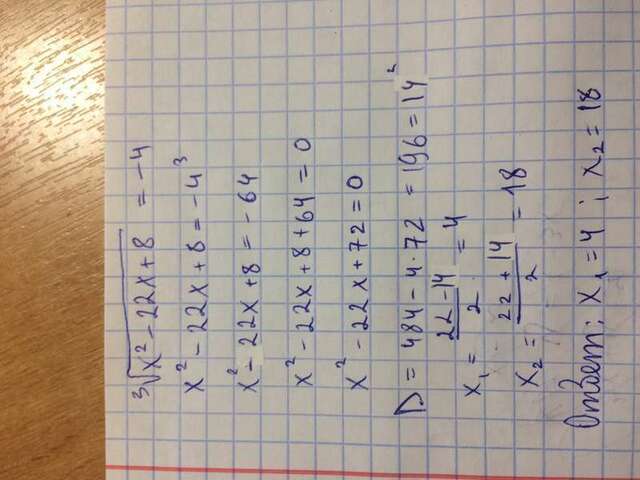 ∛(x² − 22x + 8) = −4
x² − 22x + 8 = −4³
x² − 22x + 8 = −64
x² − 22x + 8 + 64 = 0
x² − 22x + 72 = 0
D = 484 − 4·72 = 196 = 14²
x₁ = (22 − 14)/2 = 4
x₂ = (22 + 14)/2 = 18
Ответ: x₁ = 4 ; x₂ = 18